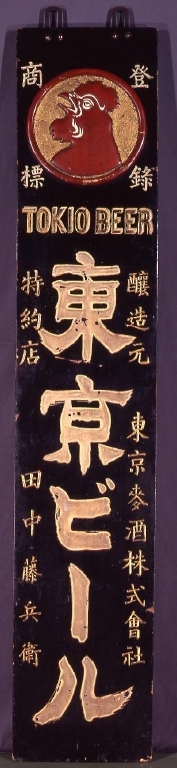 登錄
商標
TOKIO BEER
東京ビール
釀造元 東京麥酒株式會社
特約店 田中藤兵衛